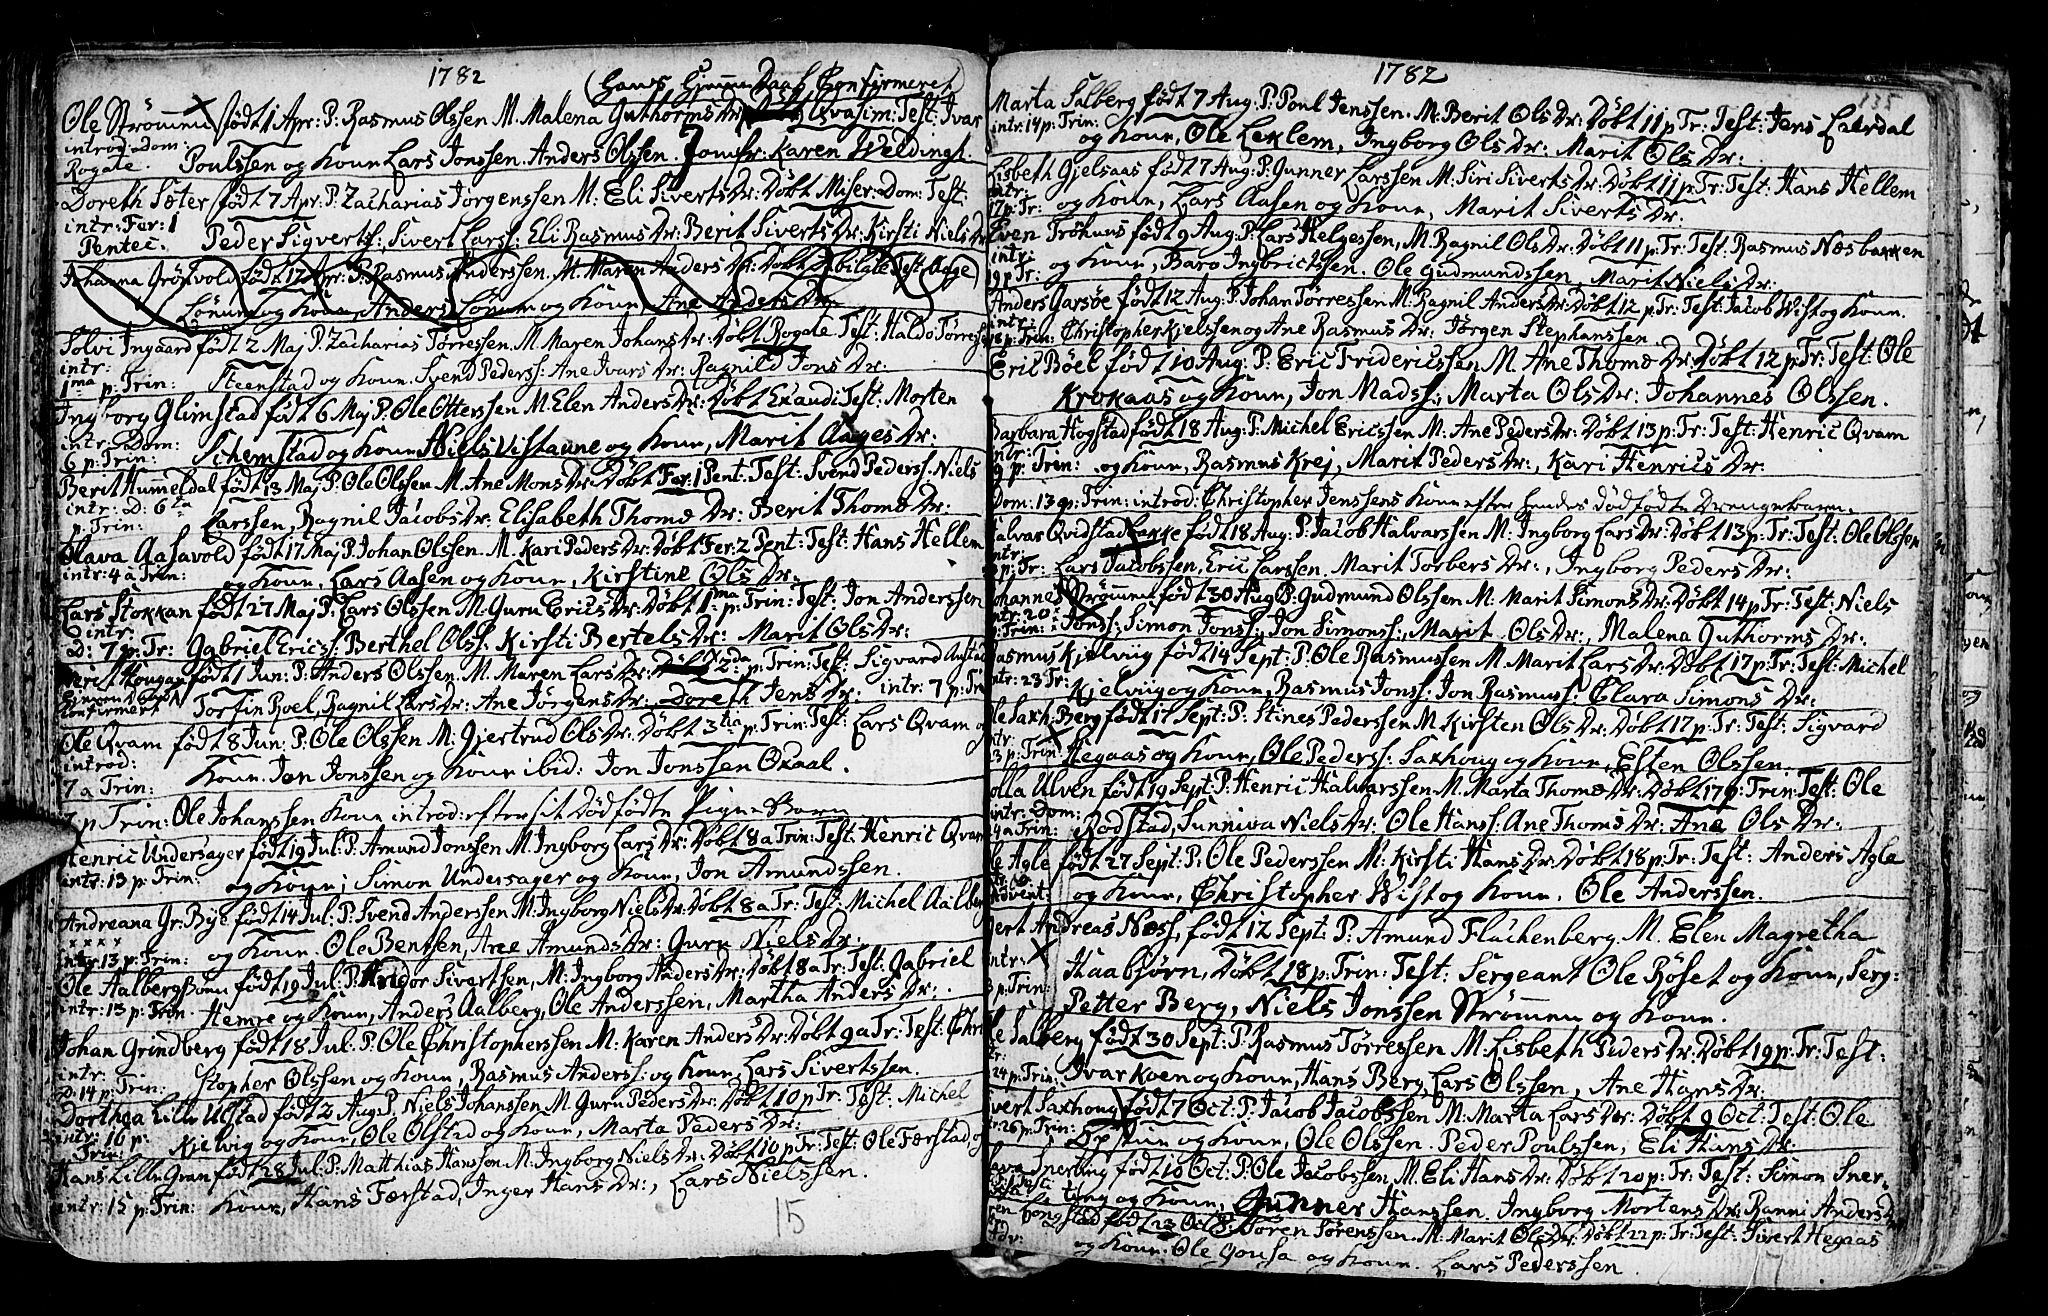 1782
(Hans Hiemme Daab Confirmeret)
Ole Strömmen født 1 Apr: P. Rasmus Olssen M. Malena Guthorms Dr: Døbt Qvasim: Test: Ivar
introd: Dom: Rogate. Poulssen og Koun Lars Jonssen. Anders Olssen. Jomfr: Karen Weldingh.
Doreth Sæter født 7 Apr: P. Zacharias Jörgenssen M: Eli Siverts Dr: Døbt Miser: Dom: Test:
intr: Fer: 1 Pentec. Peder Sigvertss: Sivert Larss: Eli Rasmus Dr: Berit Siverts Dr: Kirsti Niels Dr
Johanna Grönvold født 17 Apr: P. Rasmus Anderssen. M. Maren Anders Dr: Døbt Jubilate Test: Aage
Lönum og Koun, Anders Lönum og Koun, Ane Anders Dr:
Solvi Ingaard født 2 Maj P. Zacharias Törressen. M. Maren Johans Dr: Døbt Rogate Test: Haldo Törress
intr: 1ma p: Trin: Steenstad og Koun. Svend Pederss: Ane Ivars Dr: Ragnild Jons Dr:
Ingborg Glimstad født 6 Maj P. Ole Otterssen M. Elen Anders Dr: Døbt Exaudi Test: Morten
intr: Dom: 6 p: Trin: Schemstad og Koun Niels Vistaune og Koun, Marit Aages Dr:
Berit Hummeldal født 13 Maj P: Ole Olssen M. Ane Mons Dr: Døbt Fer: 1 Pent: Test: Svend Pederss. Niels
intr: D: 6ta p: Trin: Larssen, Ragnil Jacobs Dr: Elisabeth Thomæ Dr: Berit Thomæ Dr:
Olava Aasavold født 17 Maj P. Johan Olssen. M. Kari Peders Dr: Døbt Fer: 2 Pent: Test: Hans Hellem
intr: 4 a Trin: og Koun, Lars Aasen og Koun, Kirstine Ols Dr:
Lars Stokkan født 27 Maj P: Lars Olssen M. Guru Erics Dr: Døbt 1ma p: Trin: Test: Jon Anderssen
intr: D: 7 p: Tr: Gabriel Erics: Berthel Olss: Kirsti Bertels Dr: Marit Ols Dr:
Berit Hougan født 1 Jun: P: Anders Olssen. M. Maren Lars Dr: Døbt 2da p: Trin: Test: Sigvard
Confirmert Torfin Roel, Ragnil Lars Dr: Ane Jörgens Dr: Doreth Jens Dr: intr: 7 p: Tr
Ole Qvam født 8 Jun: P: Ole Olssen M: Gjertrud Ols Dr: Døbt 3tia p: Trin: Test: Lars Qvam og
introd: 7 a Trin: Koun. Jon Jonssen og Koun ibid: Jon Jonssen Oxaal.
7 p Trin: Ole Johanssen Koun introd: efter sit Dødfødte Pige-Barn
Henric Undersager født 19 Jul: P. Amund Jonssen M. Ingborg Lars Dr: Døbt 8 a Trin: Test: Henric Qvam
intr: 13 p: Trin: og Koun; Simon Undersager og Koun, Jon Amundssen.
Andreana Gr: Bye født 14 Jul: P. Svend Anderssen M: Ingborg Niels Dr: Døbt 8 a Tr: Test: Michel Aalberg
intr: 13 p: Trin: og Koun Ole Bentsen, Aree Amunds Dr: Guru Niels Dr:
Ole Aalberg født 19 Jul: P. Haldor Sivertsen, M: Ingborg Anders Dr: Døbt 8 a Tr: Test: Gabriel
intr: 13 p: Trin Hemre og Koun, Anders Aalberg, Ole Anderssen, Martha Anders Dr:
Johan Grindberg født 18 Jul: P. Ole Christopherssen M: Karen Anders Dr: Døbt 9 a Tr: Test: Chri
intr: D: 14 p: Trin: stopher Olssen og Koun, Rasmus Anderss: og Koun, Lars Sivertssen.
Dorthea Lille Ulstad født 2 Aug: P. Niels Johanssen M. Guru Peders Dr: Døbt 10 p Tr: Test: Michel
intr: 16 p: Trin: Kjelvig og Koun, Ole Olstad og Koun, Marta Peders Dr:
Hans Lille Gran født 28 Jul: P. Matthias Hanssøn M. Ingborg Niels Dr: Døbt 10 p Tr: Test: Ole Færstad, og
intr: 15 p: Trin: Koun, Hans Færstad, Inger Hans Dr:, Lars Nielssen.
15
1782
135
Marta Salberg født 7 Aug: P: Poul Jenssen. M: Berit Ols Dr: Døbt 11 p Tr: Test: Jens Laerdal
intr: 14 p: Trin: og Koun, Ole Leklem, Ingborg Ols Dr: Marit Ols Dr:
Lisbeth Gjelsaas født 7 Aug: P: Gunner Larssen M: Siri Siverts Dr: Døbt 11 p: Tr: Test: Hans Hellem
intr: 17 p: Tr: og Koun, Lars Aasen og Koun, Marit Siverts Dr:
Even Tröhuus født 9 Aug: P. Lars Helgessen, M. Ragnil Ols Dr: Døbt 11 p: Tr: Test: Rasmus Næsbakken
intr: 19 p: Tr: og Koun, Baro Ingbrictssen. Ole Gudmundssen, Marit Niels Dr:
Anders Garsöe født 12 Aug: P. Johan Törressen M: Ragnil Anders Dr: Døbt 12 p Tr: Test: Jacob Wist og Koun.
intr: 18 p: Trin: Christopher Kjelssen og Ane Rasmus Dr: Jörgen Stephanssen
Eric Böel født 10 Aug: P: Eric Fridericssen M. Ane Thomæ Dr: Døbt 12 p Tr: Test: Ole
Krokaas og Koun, Jon Madss:, Marta Ols Dr: Johannes Olssen.
Barbara Hogstad født 18 Aug: P: Michel Ericssen M: Ane Peders Dr: Døbt 13 p: Tr: Test: Henric Qvam
intr: 19 p: Trin: og Koun, Rasmus Krej, Marit Peders Dr:, Kari Henrics Dr:
Dom: 13 p: Trin: introd: Christopher Jenssens Koun efter hendes dødfødte Drengebarn.
Halvar Qvidstad født 18 Aug: P: Jacob Halvarssen M: Ingborg Lars Dr: Døbt 13 p: Tr: Test: Ole Olssen
intr: p: Tr: Lars Jacobssen, Eric Larssen. Marit Torbers Dr:, Ingborg Peders Dr:
Johannes Strömmen født 30 Aug P: Gudmund Olssen M: Marit Simons Dr: Døbt 14 p: Tr: Test: Niels
intr: 20 p: Trin: Jonss: Simon Jonss:, Jon Simonss:, Marit Ols Dr:, Malena Guthorms Dr:
Rasmus Kjelviig født 14 Sept: P. Ole Rasmussen M. Marit Lars Dr: Døbt 17 p: Tr: Test: Michel
intr: 23 Tr: Kjelvig og Koun, Rasmus Jonss: Jon Rasmuss: Clara Simons Dr:
Ole Saxh: Berg født 17 Sept: P. Stines Pederssen M. Kirsten Ols Dr: Døbt 17 p: Tr: Test: Sigvard
intr: 23 p: Trin: Hegaas og Koun, Ole Pederss: Saxhoug og Koun, Esten Olssen.
Kolla Ulven født 19 Sept: P: Henric Halvarssen M. Marta Thomæ Dr: Døbt 17 p: Trin: Test: Ole
intr: Dom: 24 a Trin: Rodstad, Sunniva Niels Dr: Ole Hanss: Ane Thoms Dr: Ane Ols Dr:
Ole Agle født 27 Sept: P: Ole Pederssen M: Kirsti Hans Dr: Døbt 18 p: Tr: Test: Anders Agle
Advent: og Koun, Christopher Wist og Koun, Ole Anderssen.
Gert Andreas Næss, født 12 Sept: P: Amund Flachenberg. M. Elen Magretha
intr: 3 p: Trin: Haabjörn, Døbt 18 p: Trin: Test: Sergeant Ole Röset og Koun, Serg:
Petter Berg, Niels Jonssen Strömmen og Koun.
Ole Salberg født 30 Sept: P: Rasmus Törressen M: Lisbeth Peders Dr: Døbt 19 p: Tr: Test:
intr: 24 p: Trin: Ivar Koen og Koun, Hans Berg, Lars Olssen, Ane Hans Dr:
Sivert Saxhoug født 7 Oct: P: Jacob Jacobssen M: Marta Lars Dr: Døbt 9 Oct: Test: Ole
intr: 26 p: Trin: Opstun og Koun, Ole Olssen. Peder Poulssen, Eli Hans Dr:
Lava Snerting født 10 Oct: P: Ole Jacobssen, M. Eli Hans Dr: Døbt 20 p: Tr: Test: Simon Sner-
ting og Koun, Gunner Hanssen. Ingborg Mortens Dr: Ranni Anders Dr
Hougstad født 23 Oct P: Sören Sörenssen. M: Marit Ols Dr: Døbt 22 p: Tr: Test: Sivert Hegaas
Adv: og Koun. Ole Gousa og Koun. Lars Pederssen.